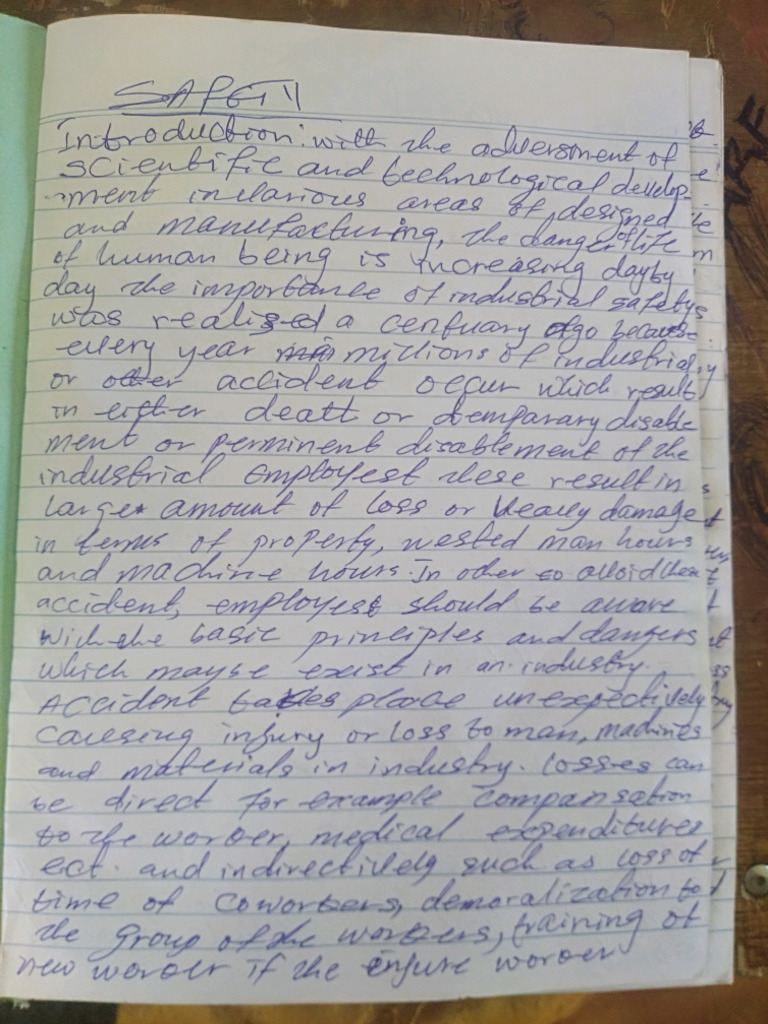 SAFETY
Introduction: with the adversment of
scientific and technological develop
-ment in various areas of designed
and manufacturing, the danger of life
of human being is increasing day by
day the importance of industrial safety
was realised a centuary ago because
every year millions of industrial
or other accident occur which result
in either deatt or temparary disable
ment or perminent disablement of the
industrial employest these result in
large amount of loss or heavy damage
in terms of property, wested man hours
and machine hours. In other to avoid these
accident, employest should be aware
with the basic principles and dangers
which maybe exist in an industry.
Accident takes place unexpectively
causing injury or loss to man, machines
and materials in industry. losses can
be direct for example compansation
to the worker, medical expenditures
ect. and indirectively such as loss of
time of coworkers, demoralization to
the group of the workers, training of
new worker if the injure worker